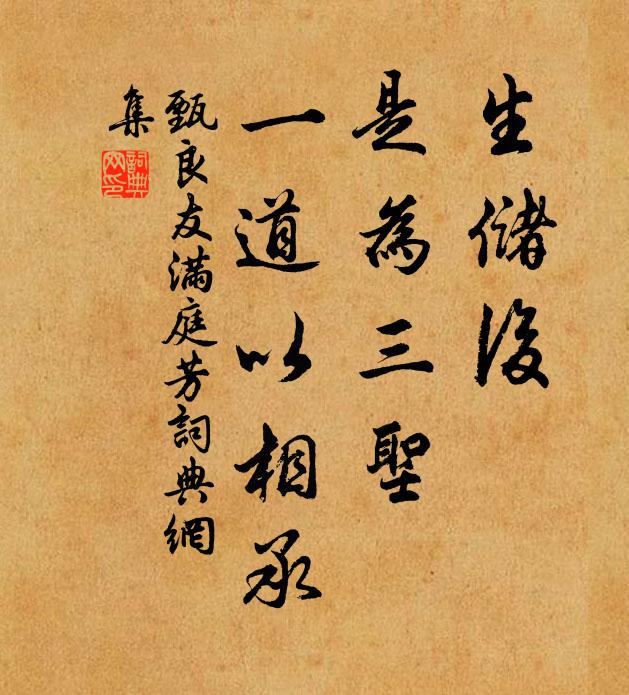 生儲後
是為三聖
一道以相承
甄良友滿庭芳詞典網
集
詞典網印